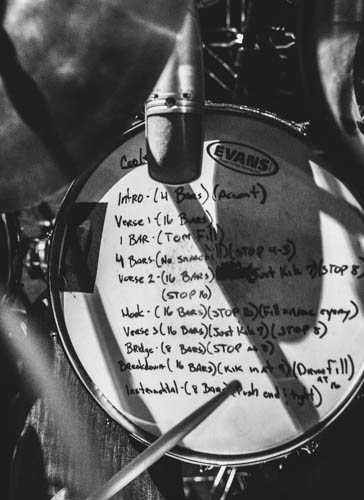 EVANS
Intro - (4 Bars) (Accent)
Verse 1 - (16 Bars)
1 BAR - (Tom Fill)
4 Bars - (No snare fill) (STOP 4-3)
Verse 2 - (16 Bars) (Just Kik 9) (STOP 8
(STOP 16)
Hook - (16 Bars) (STOP 16) (Fill snare
Verse 3 (16 Bars) (Just Kik 9) (STOP 8)
Bridge - (8 Bars) (STOP at 8)
Breakdown - (16 Bars) (Kik in at 9) (Drum fill)
AT 16
Instremental - (8 Bars) (Push end tight)